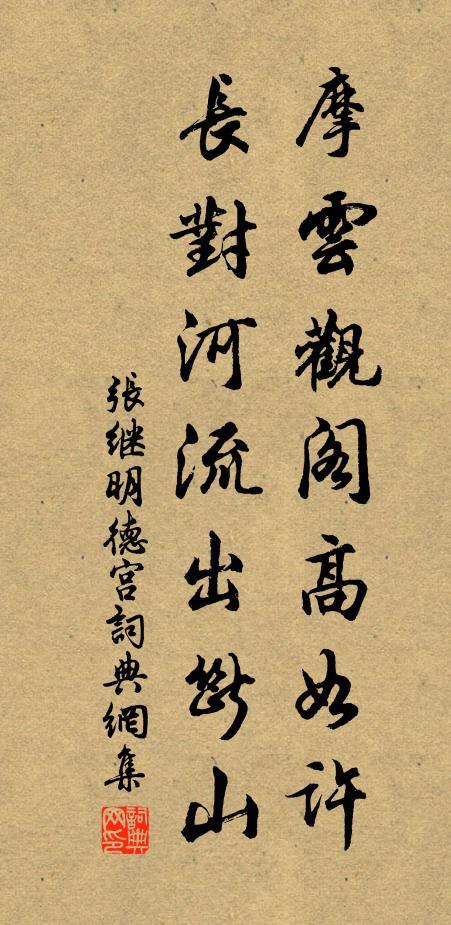 摩雲觀閣高如許
長對河流出斷山
張继明德宮詞典網集
詞典網印